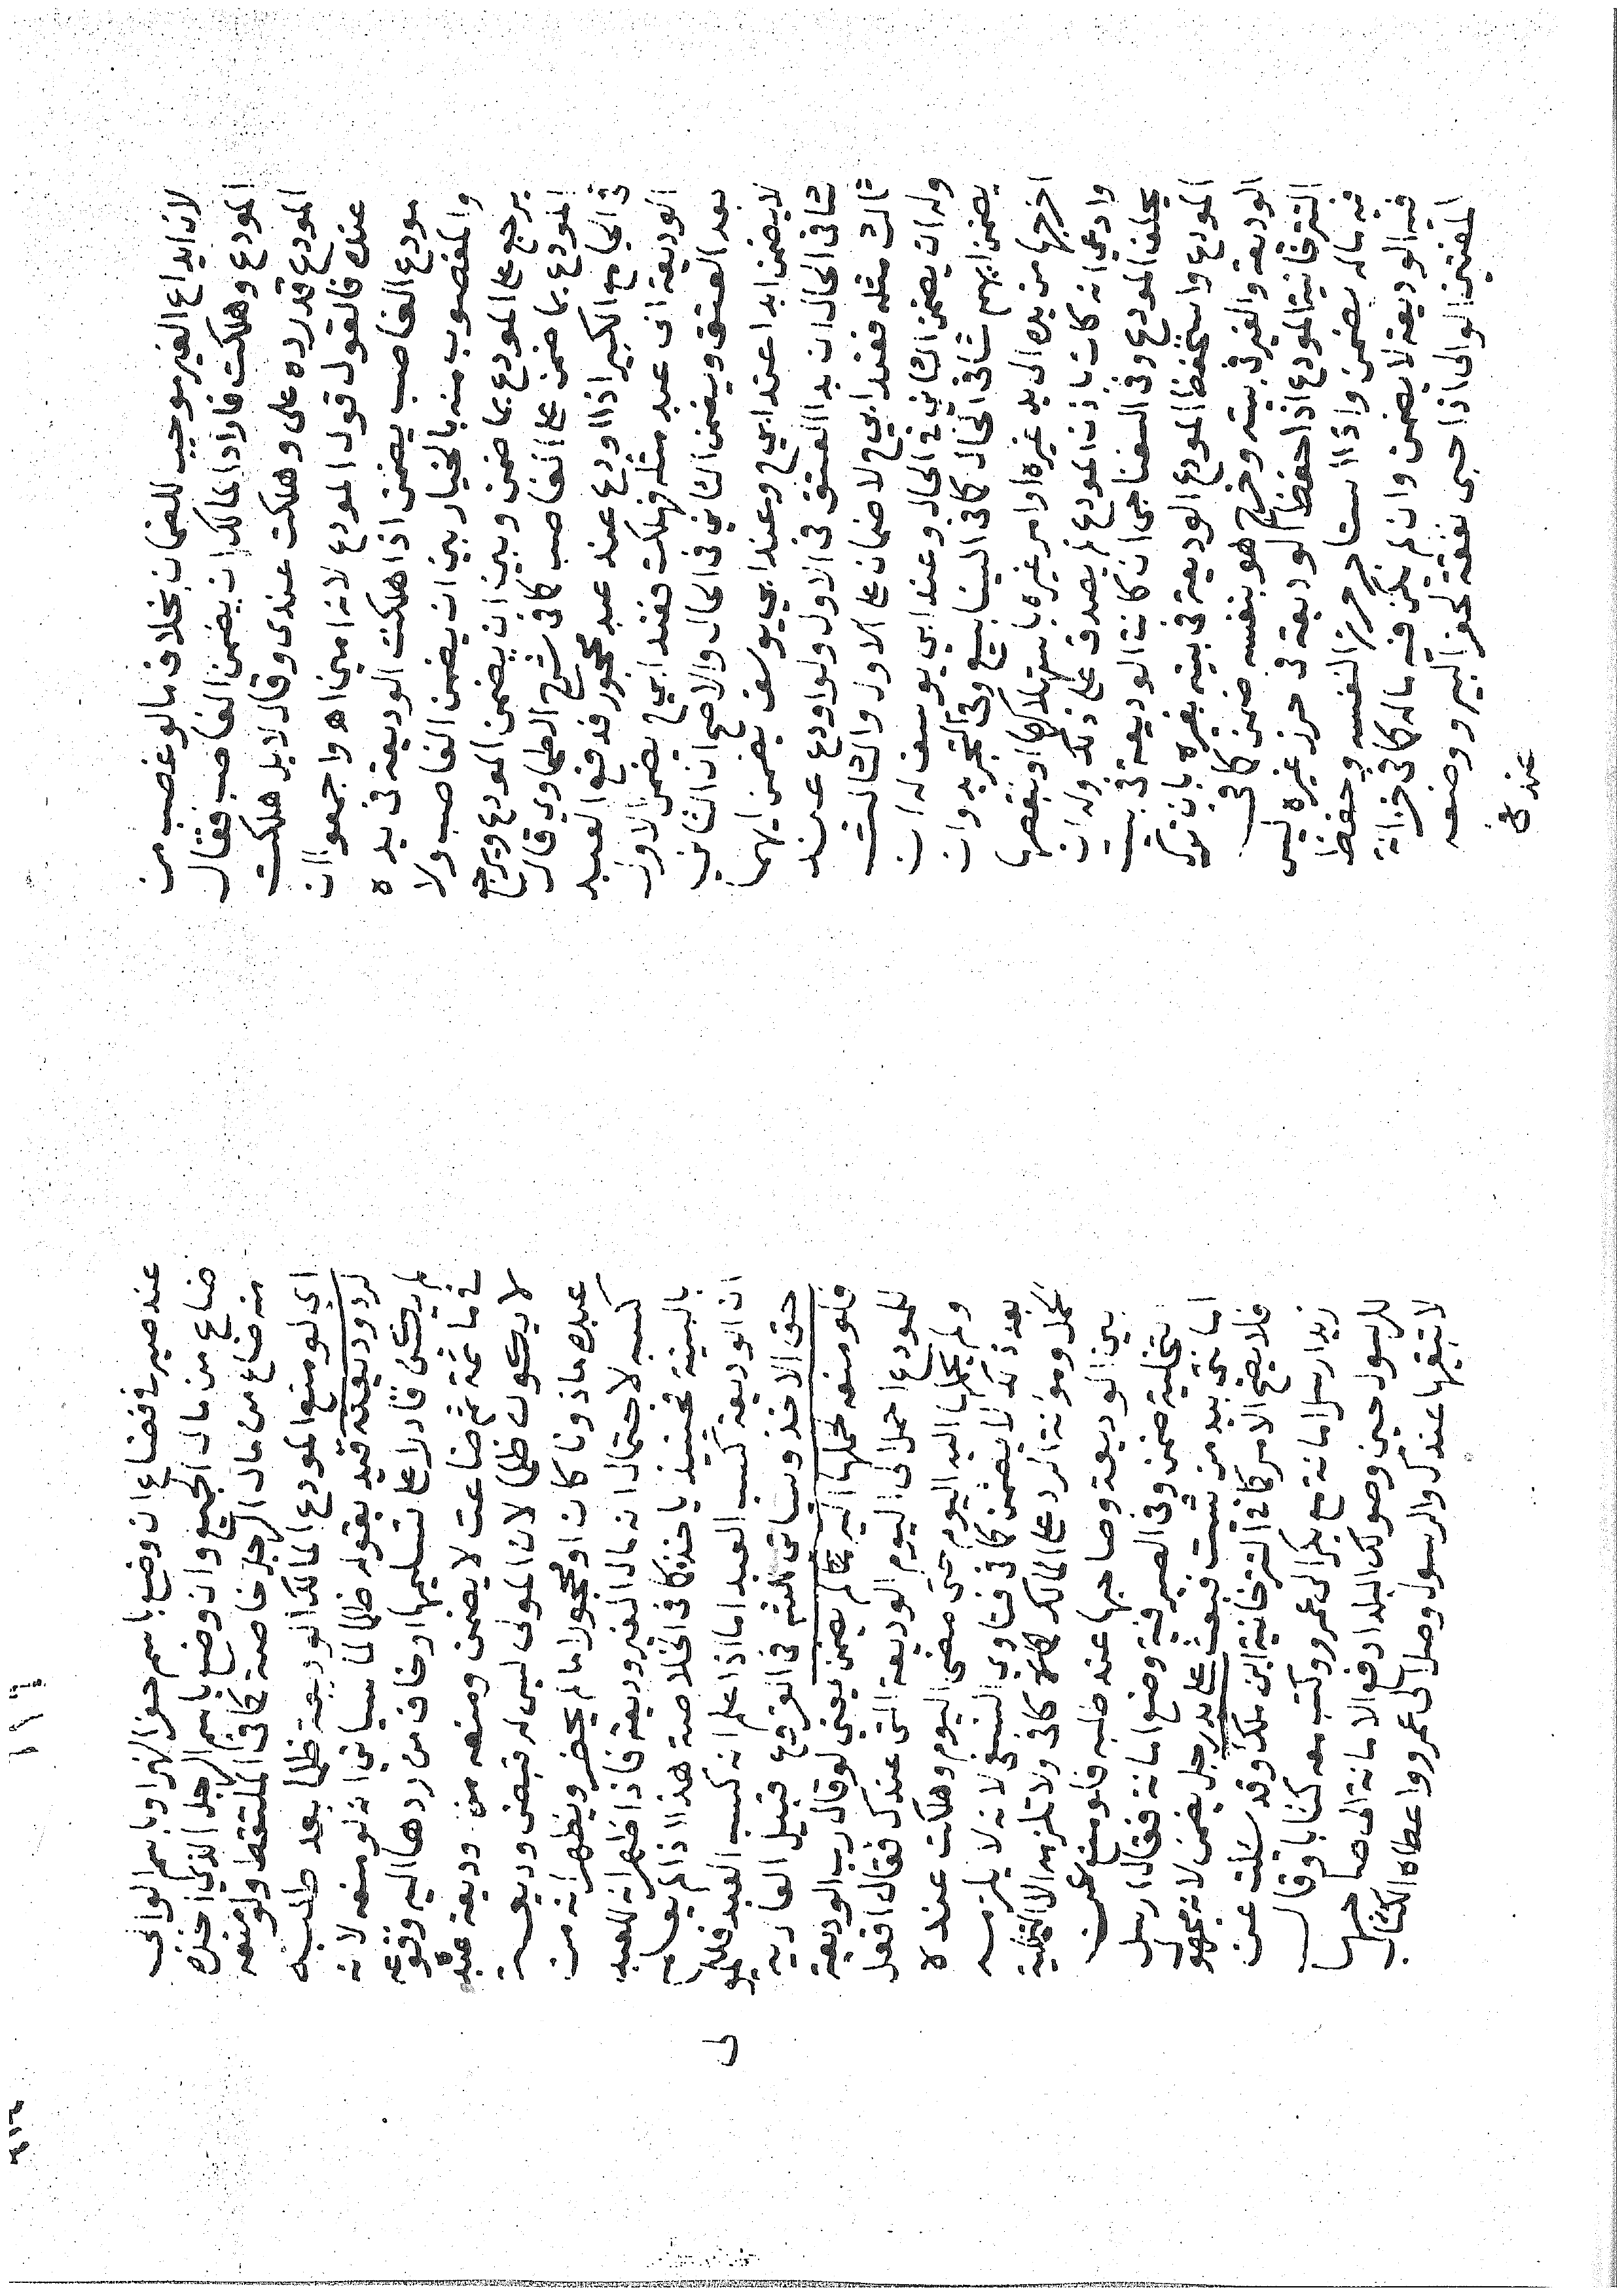 لان ايداع الغير موجب للضمان بخلاف مالو غصب من
المودع وهلكت فاراد المالك ان يضمن الغاصب فقال
المودع قد رده على وهلكت عندى وقال لا بل هلكت
عنده فالقول قول المودع لانه امين اهـ واجمعوا ان
مودع الغاصب يضمن اذا هلكت الوديعة فى يده
والمغصوب منه بالخيار بين ان يضمن الغاصب ولا
يرجع على المودع بما ضمن وبين ان يضمن المودع ويرجع
المودع بما ضمن على الغاصب كما فى شرح الطحاوي قال
فى الجامع الكبير اذا اودع عند عبد محجور فدفع العبد
الوديعة الى عبد مثله فهلكت فعند ابي ح يضمن الاول
بعد العتق ويضمن الثاني فى الحال والاصح ان الثاني
لا يضمن ابدا عند ابي ح وعند ابي يوسف يضمن ايهما
شا فى الحال ان بدا العتق فى الاول ولو اودع عند
ثالث مثله فعند ابي ح لا ضمان على الاول والثالث
وله ان يضمن الثاني فى الحال وعند ابي يوسف له ان
يضمن ايهم شا فى الحال كما فى الينابيع وفى التجريد وان
اخرجها من يده الى يد غيره او امر غيره باستهلاكها او بنقصها
وادعي انه كان باذن المودع لم يصدق على ذلك وله ان
يحلف المودع وفى السغناجى ان كانت الوديعة فى بيت
المودع واستحفظ المودع الوديعة فى بيته بغيره بان ترك
الوديعة والغير فى بيته وخرج هو بنفسه ضمن كما فى
التترخانية المودع اذا حفظ الوديعة فى حرز غيره ليس
فيه ماله يضمن واذا استاجر حرزا لنفسه وحفظ
فيه الوديعة لا يضمن وان لم يكن فيه ماله كما فى خزانة
المفتين الوالى اذا جبى نفقة لحفر البير ووضعه
عند ص
عند صيرفى فضاع ان وضع باسم حفر النهر او باسم الوالى
ضاع من مال الجميع وان وضع باسم الرجل الذي اخذه
منه ضاع من مال الرجل خاصة كما فى الملتقط ولو منعه
اى لو منع المودع المالك الوديعة ظلما بعد طلبه
لرد وديعته قيد بقوله ظلما لما سياتي انه لو منعه لانه
لم يكن قادرا على تسليمها او خاف من ردها اليه وقوعه
فى ماثمة ثم ضاعت لا يضمن ومنعه من وديعة عبده
لا يكون ظلما لان المولى ليس له قبض وديعة
عبده ماذونا كان او محجورا ما لم يحضر ويظهر انه من
كسبه لاحتمال انه مال الغير وديعة فاذا ظهر انه للعبد
بالبينة فحينئذ ياخذه كما فى الخلاصة هذا اذا لم يعلم
ان الوديعة كسب العبد اما اذا علم انه كسب العبد فللمولى
حق الاخذ وسياتى الثم فى الفروع قبيل العارية
فلو منعه لحملها اليه لم يضمن يعني لو قال رب الوديعة
للمودع احمل الى اليوم الوديعة التى عندك فقال افعل
ولم يحملها اليه اليوم حتى مضى اليوم وهلكت عنده
بعد ذلك لا يضمن كما فى فتاوي النسفى لانه لا يلزمه
حمل ومؤنة الرد على المالك كما فى ولا تلزمه الا التخلية
بين الوديعة وصاحبها عند طلبه فلو منع عن
تخلية ضمن وفى الصيرفية وضع امانة فقال ارسل
امانتى بيد من شئت فبعث على يد رجل يضمن لانه مجهول
فلا يصح الامر كما فى التترخانية ابن ملك وقد سئلت عن
زيد ارسل امانة مع بكر الى عمرو وكتب معه كتابا وقال
للرسول حين وصولك البلد ادفع الامانة الى صاحبها
لا تبقيها عندك والرسول وصل الى عمرو واعطاه الكتاب